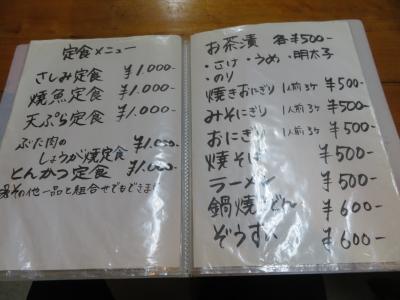 定食メニュー
さしみ定食 ¥1.000-
焼魚定食 ¥1.000-
天ぷら定食 ¥1.000-
ぶた肉の
しょうが焼定食 ¥1.000-
とんかつ定食 ¥1.000-
※その他一品と組合せでもできます
お茶漬 各¥500-
・さけ・うめ・明太子
・のり
焼きおにぎり 1人前3ヶ ¥500-
みそにぎり 1人前3ヶ ¥500-
おにぎり 1人前3ヶ ¥500-
焼そば ¥500-
ラーメン ¥500-
鍋焼うどん ¥600-
ぞうすい ¥600-